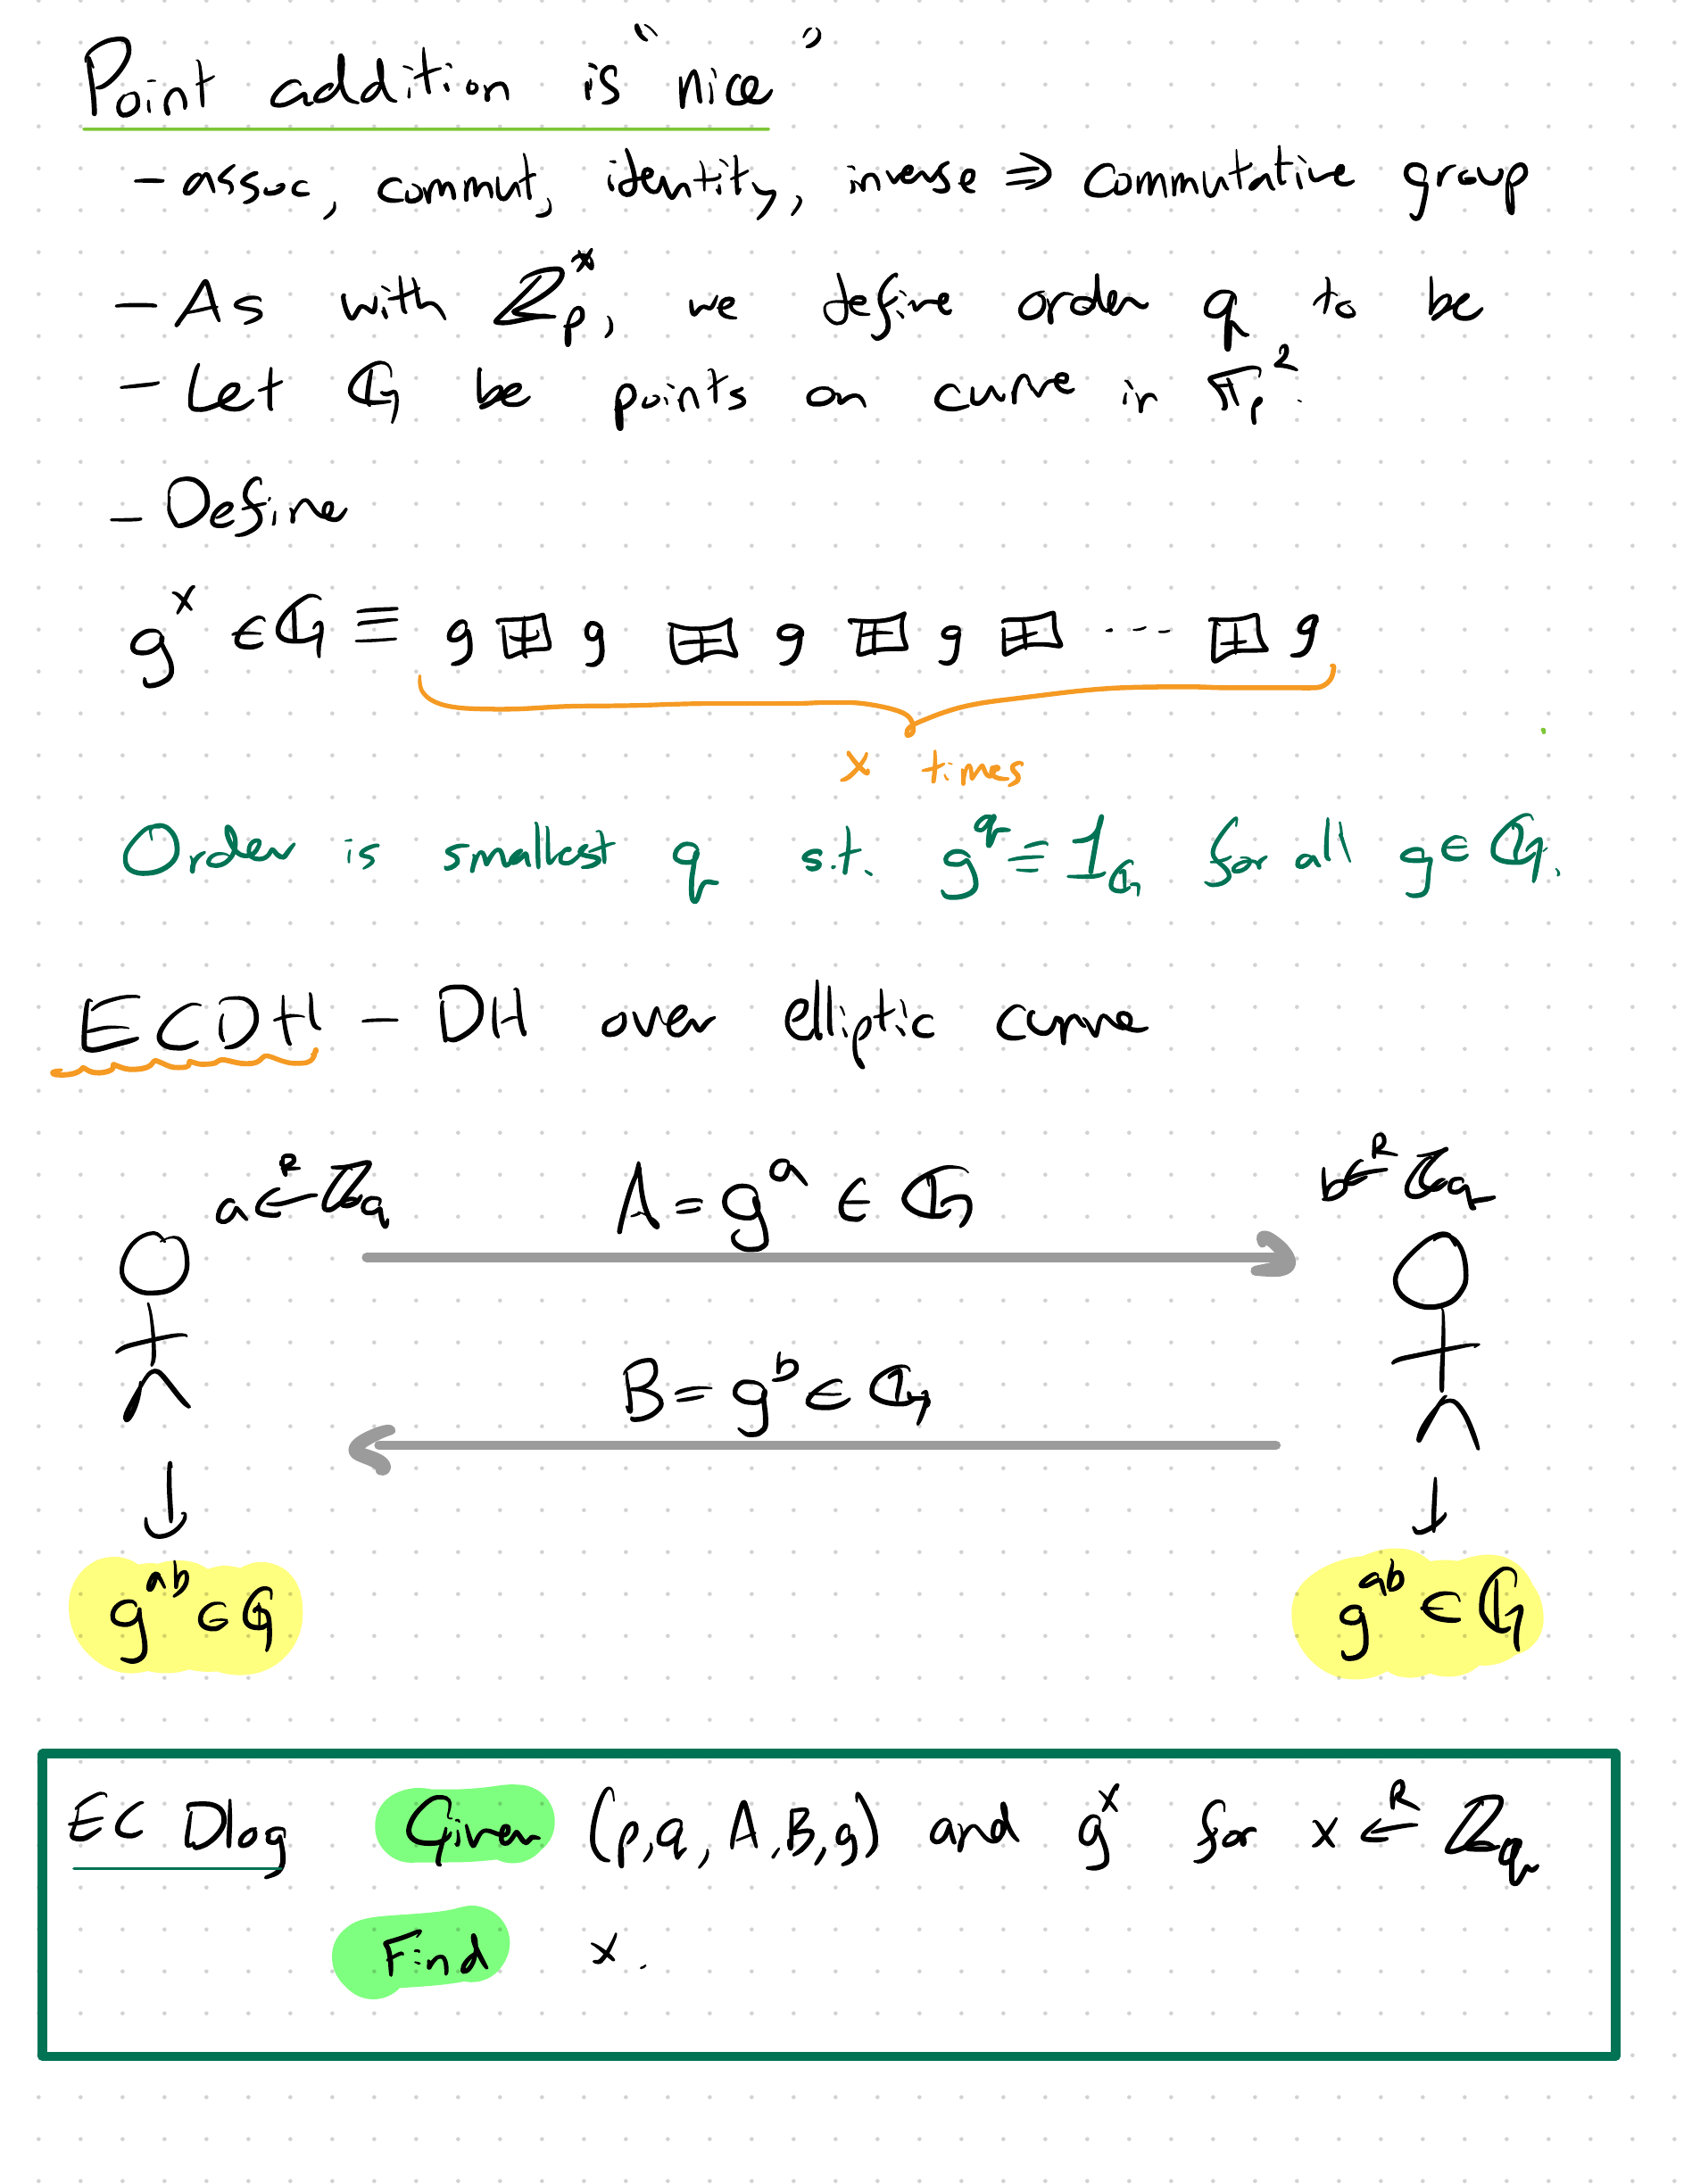 Point addition is "nice"
- assoc, commut, identity, inverse ⇒ commutative group
- As with ℤₚ*, we define order q to be
- Let 𝔾 be points on curve in 𝔽ₚ².
- Define
gˣ ∈ 𝔾 ≡ g ⊞ g ⊞ g ⊞ g ⊞ ··· ⊞ g
x times
Order is smallest q s.t. g^q ≡ 1_𝔾 for all g ∈ 𝔾.
ECDH - DH over elliptic curve
a ←ᴿ ℤ_q
A = g^a ∈ 𝔾
b ←ᴿ ℤ_q
B = g^b ∈ 𝔾
g^ab ∈ 𝔾
g^ab ∈ 𝔾
EC Dlog Given (p, q, A, B, g) and g^x for x ←ᴿ ℤ_q
Find x.